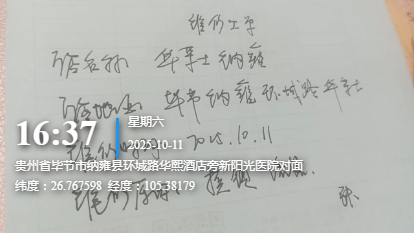 维修工单
门店名称 华莱士纳雍
门店地址 毕节纳雍环城路华莱士
2025.10.11
16:37
星期六
2025-10-11
贵州省毕节市纳雍县环城路华熙酒店旁新阳光医院对面
纬度：26.767598 经度：105.38179
维修